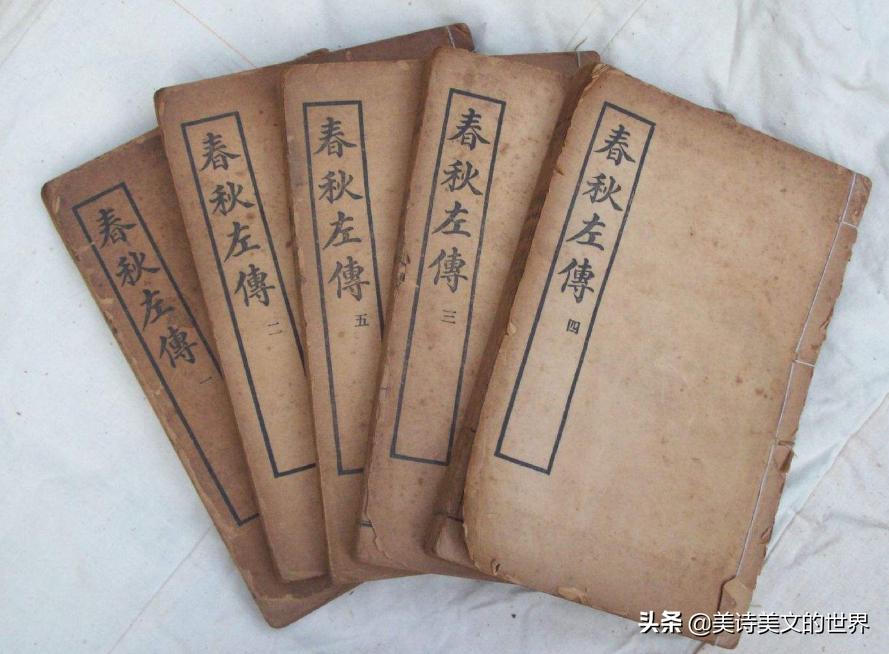 春秋左傳 一
春秋左傳 二
春秋左傳 五
春秋左傳 三
春秋左傳 四
头条 @美诗美文的世界